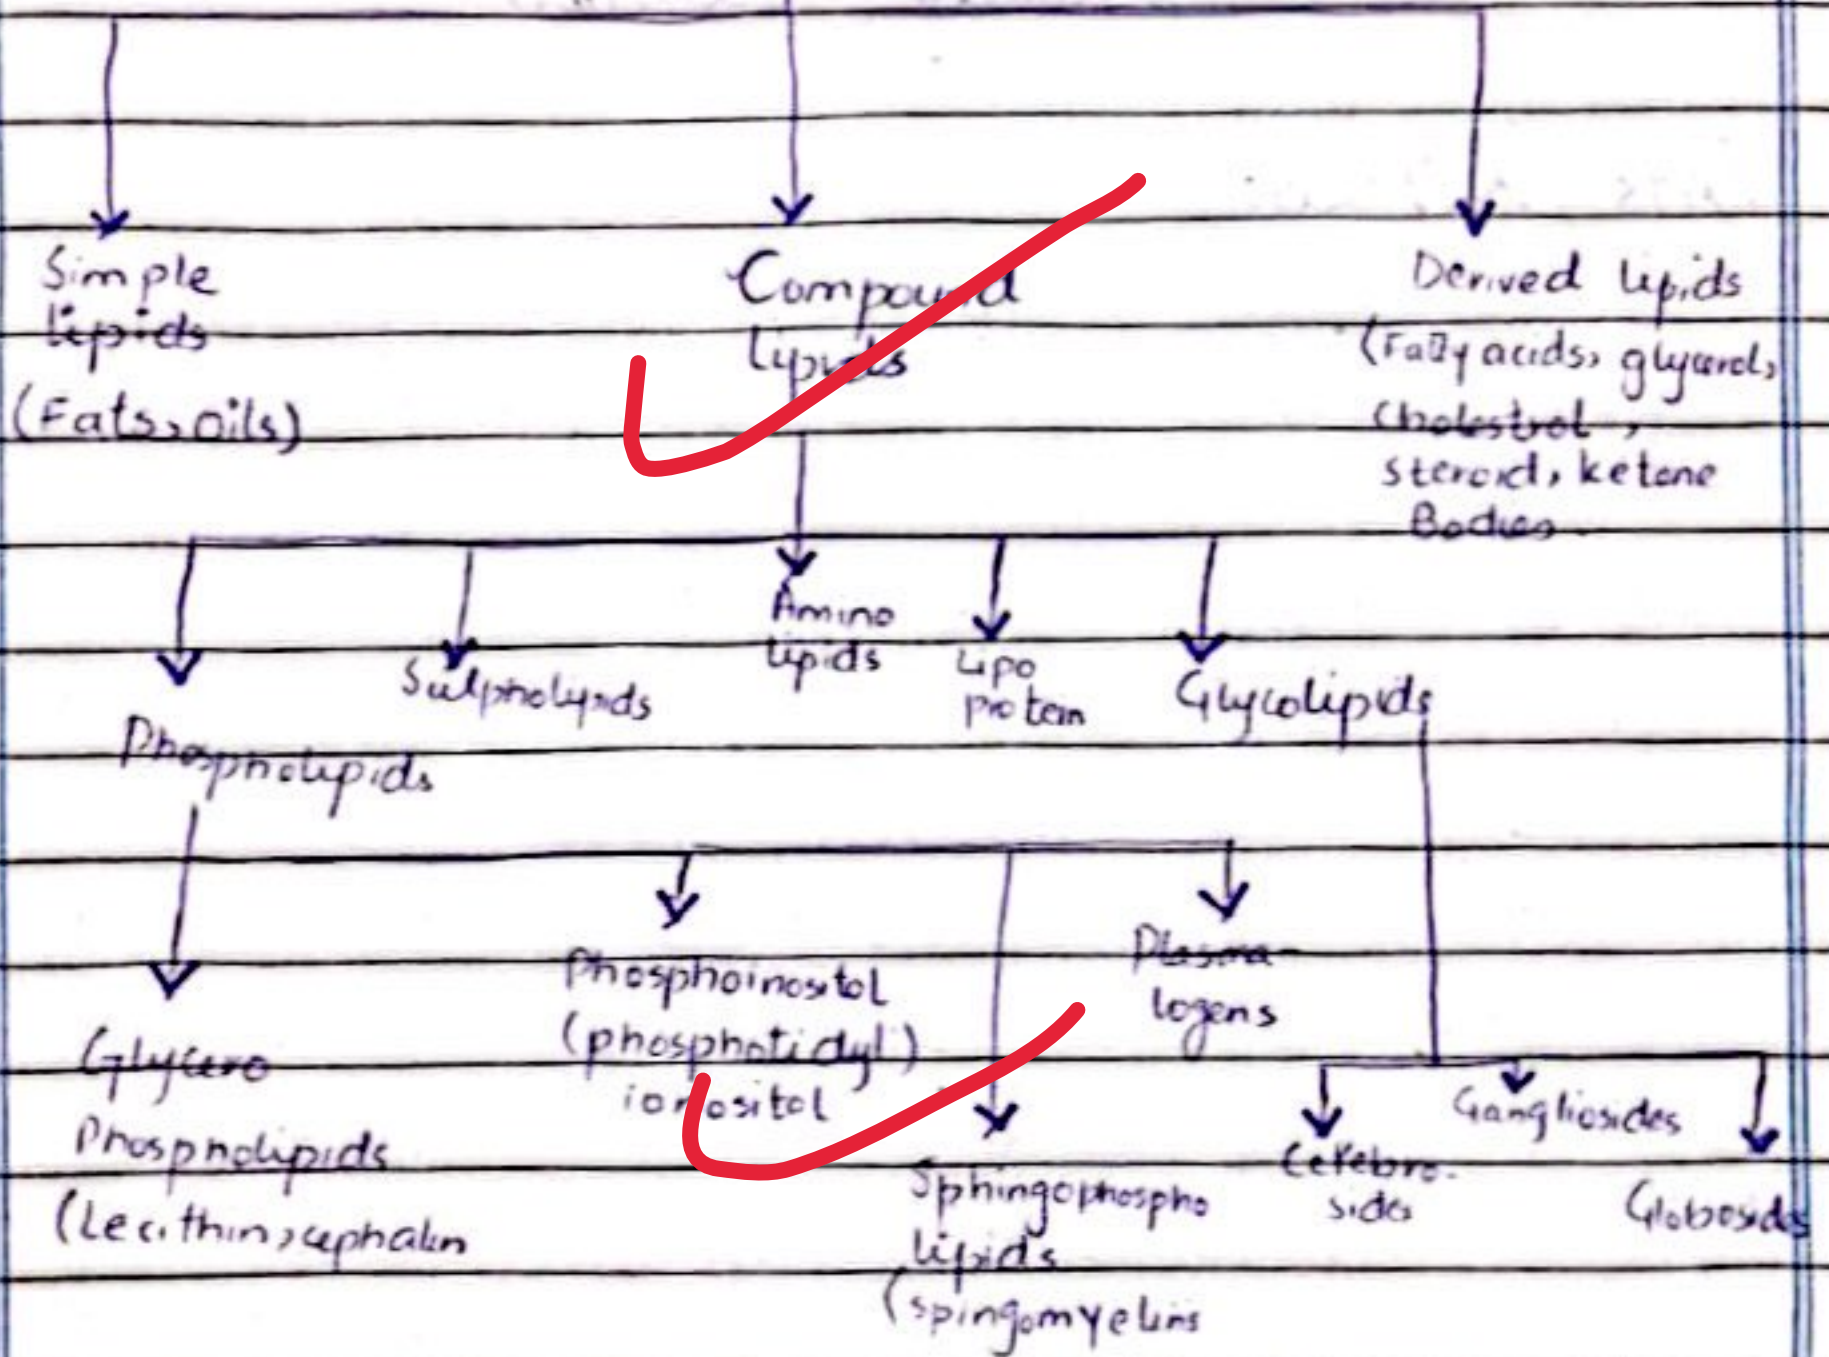 Simple
lipids
(Fats, oils)
Compound
lipids
Derived lipids
(Fatty acids, glycerol,
cholestrol,
steroid, ketone
Bodies.
Phospholipids
Sulpholipids
Amino
lipids
Lipo
protein
Glycolipids
Glycero
Phospholipids
(Lecithin, cephalin
Phosphoinositol
(phosphotidyl)
ionositol
Sphingophospho
lipids
(spingomyelins
Plasma-
logens
Cerebro-
sides
Gangliosides
Globosides